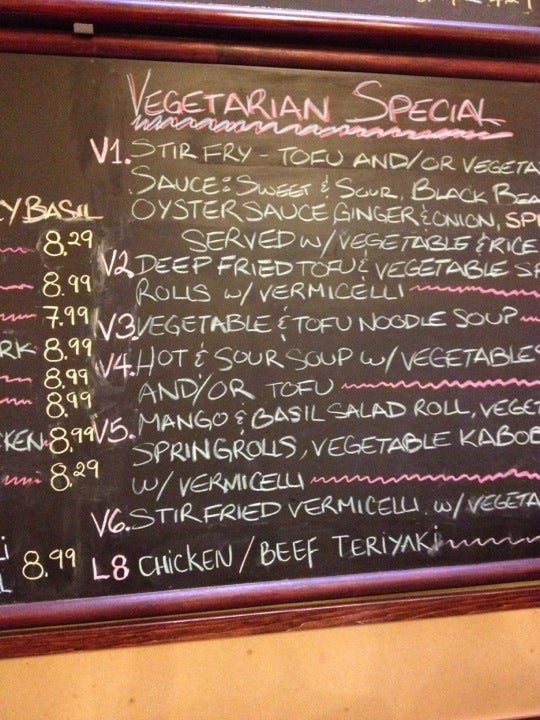 VEGETARIAN SPECIAL
V1. STIR FRY - TOFU AND/OR
SAUCE: SWEET & SOUR, BLACK
OYSTER SAUCE GINGER & ONION,
SERVED W/ VEGETABLE & RICE
V2 DEEP FRIED TOFU & VEGETABLE
ROLLS W/ VERMICELLI
V3. VEGETABLE & TOFU NOODLE SOUP
V4. HOT & SOUR SOUP W/ VEGETABLES
AND/OR TOFU
V5. MANGO & BASIL SALAD ROLL,
SPRINGROLLS, VEGETABLE KABOB
W/ VERMICELLI
V6. STIR FRIED VERMICELLI W/
L8 CHICKEN / BEEF TERIYAKI
BASIL
8.29
8.99
7.99
8.99
8.99
8.99
8.99
8.29
8.99